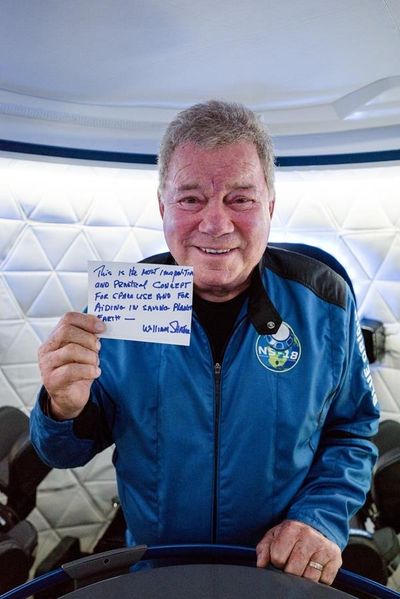 This is the most innovative
and Practical Concept
For space use and for
Aiding in saving Planet
Earth —
William Shatner
NS-18
BLUE ORIGIN